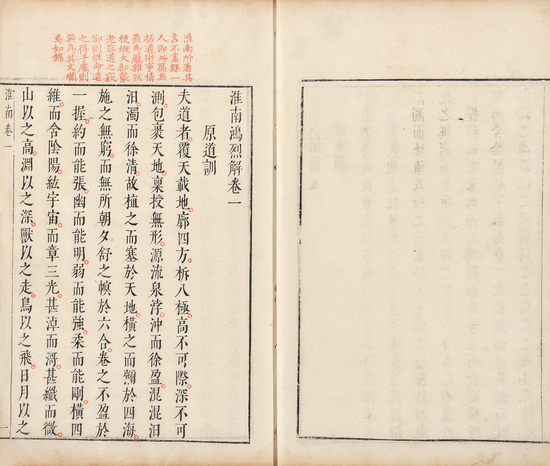 淮南所著其
淮南鴻烈解卷一
原道訓
夫道者覆天載地廓四方柝八極高不可際深不可
測包裹天地稟授無形源流泉浡沖而徐盈混混汩
汩濁而徐清故植之而塞於天地橫之而彌於四海
施之無窮而無所朝夕舒之幎於六合卷之不盈於
一握約而能張幽而能明弱而能強柔而能剛橫四
維而含陰陽紘宇宙而章三光甚淖而滒甚纖而微
山以之高淵以之深獸以之走鳥以之飛日月以之
淮南卷一
一